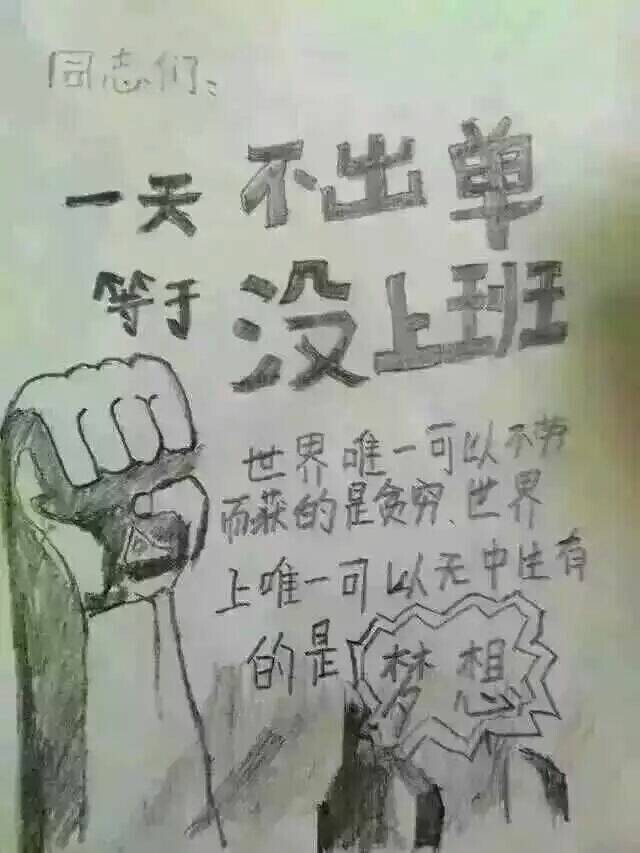 同志们:
一天 不出单
等于 没上班
世界唯一可以不劳
而获的是贪穷、世界
上唯一可以无中生有
的是 梦想